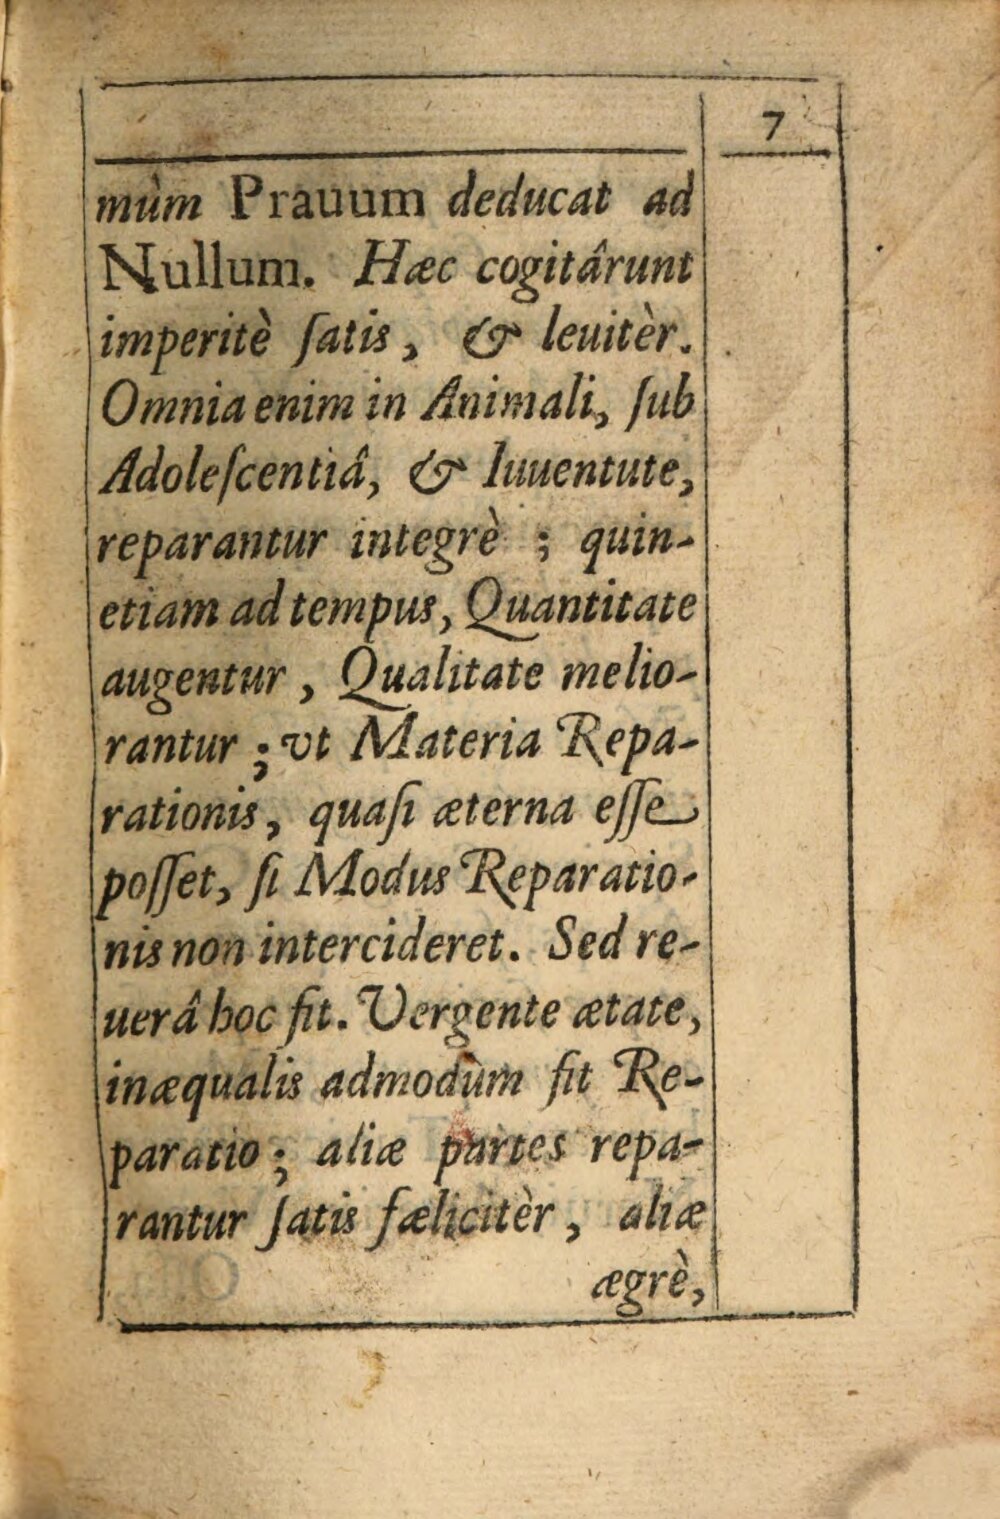 7
mùm Prauum deducat ad
Nullum. Hæc cogitârunt
imperitè ſatis, & leuitèr.
Omnia enim in Animali, ſub
Adoleſcentiâ, & Iuuentute,
reparantur integrè ; quin-
etiam ad tempus, Quantitate
augentur, Qualitate melio-
rantur ; vt Materia Repa-
rationis, quaſi æterna eſſe
poſſet, ſi Modus Reparatio-
nis non intercideret. Sed re-
uerâ hoc fit. Vergente ætate,
inæqualis admodùm fit Re-
paratio ; aliæ partes repa-
rantur ſatis fæliciter, aliæ
ægrè,